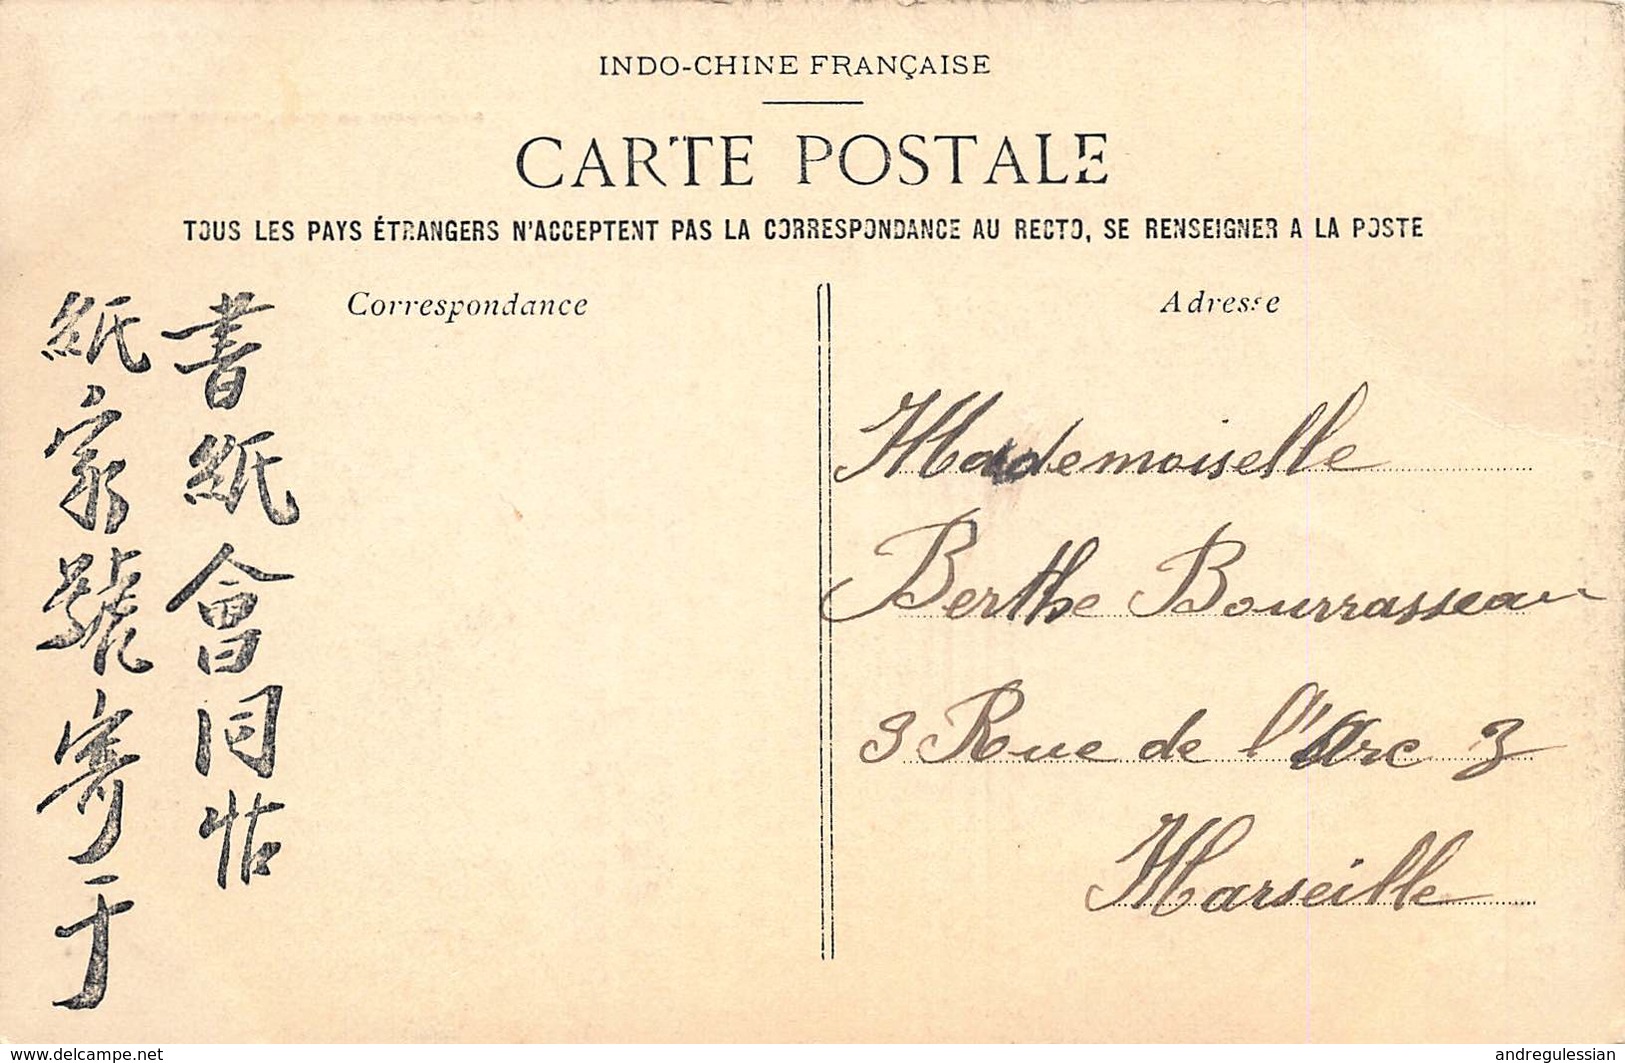 INDO-CHINE FRANÇAISE
CARTE POSTALE
TOUS LES PAYS ÉTRANGERS N'ACCEPTENT PAS LA CORRESPONDANCE AU RECTO, SE RENSEIGNER A LA POSTE
Correspondance
Adresse
書紙會同帖
紙家號寄于
Mademoiselle
Berthe Bourrasseau
3 Rue de l'Arc 3
Marseille
www.delcampe.net
andregulessian